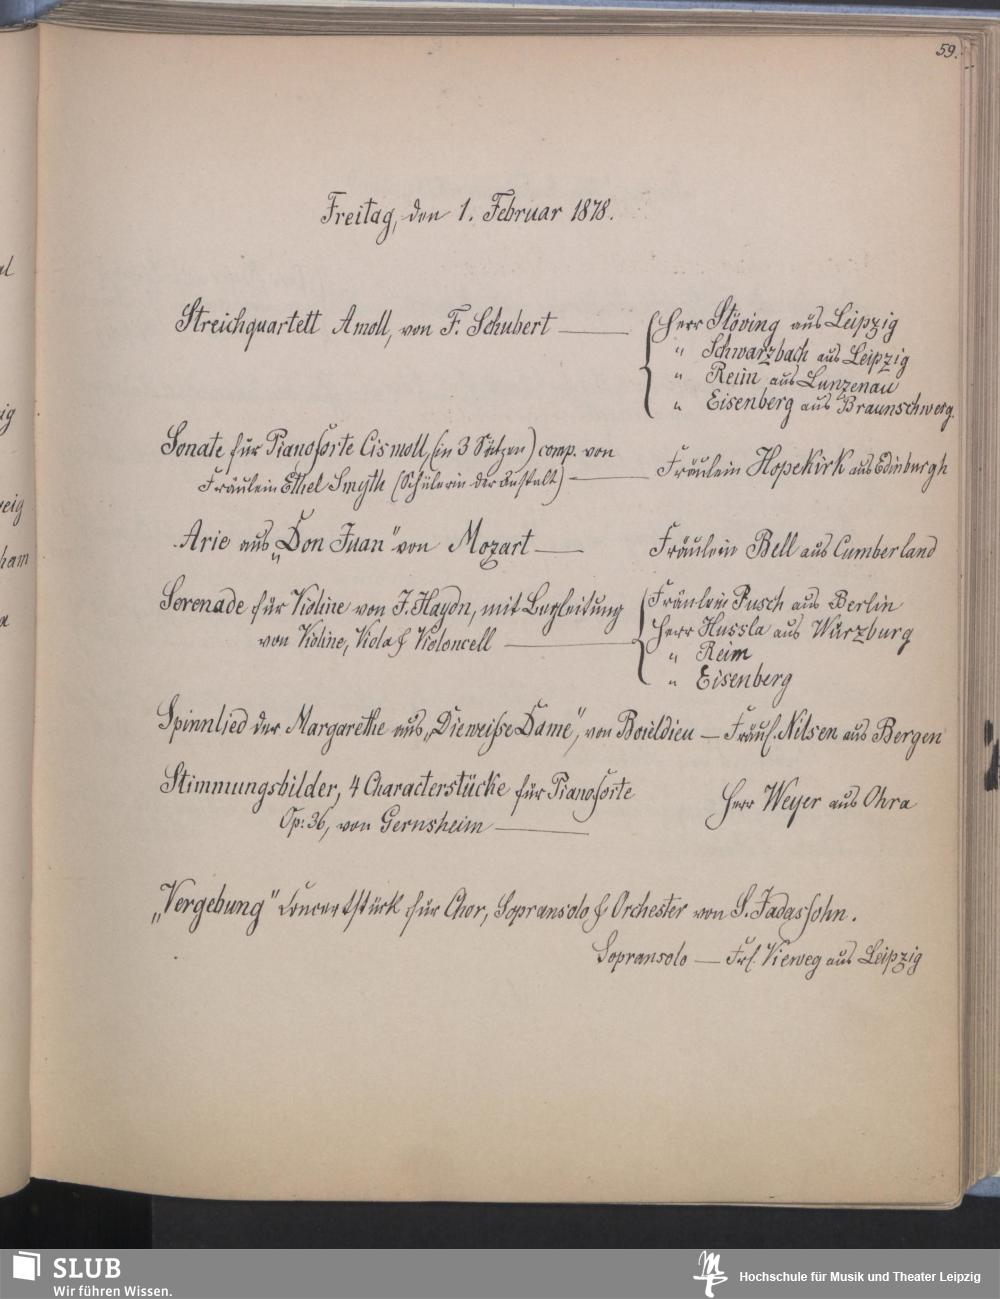 59.
Freitag, den 1. Februar 1878.
Streichquartett Amoll, von F. Schubert — Herr Stöving aus Leipzig
" Schwarzbach aus Leipzig
" Reim aus Lunzenau
" Eisenberg aus Braunschweig.
Sonate für Pianoforte Cismoll, (in 3 Sätzen) comp. von
Fräulein Ethel Smyth (Schülerin der Anstalt) — Fräulein Hopekirk aus Edinburgh
Arie aus „Don Juan" von Mozart — Fräulein Bell aus Cumberland
Serenade für Violine von J. Haydn, mit Begleitung
von Violine, Viola & Violoncell — Fräulein Pusch aus Berlin
Herr Hussla aus Würzburg
" Reim
" Eisenberg
Spinnlied der Margarethe aus „Die weisse Dame", von Boieldieu — Fräul. Nilsen aus Bergen
Stimmungsbilder, 4 Characterstücke für Pianoforte
Op: 36, von Gernsheim — Herr Weyer aus Ohra
„Vergebung" Concertstück für Chor, Sopransolo & Orchester von S. Jadassohn.
Sopransolo — Frl. Vieweg aus Leipzig
al
ig
eig
ham
a
SLUB
Wir führen Wissen.
Hochschule für Musik und Theater Leipzig